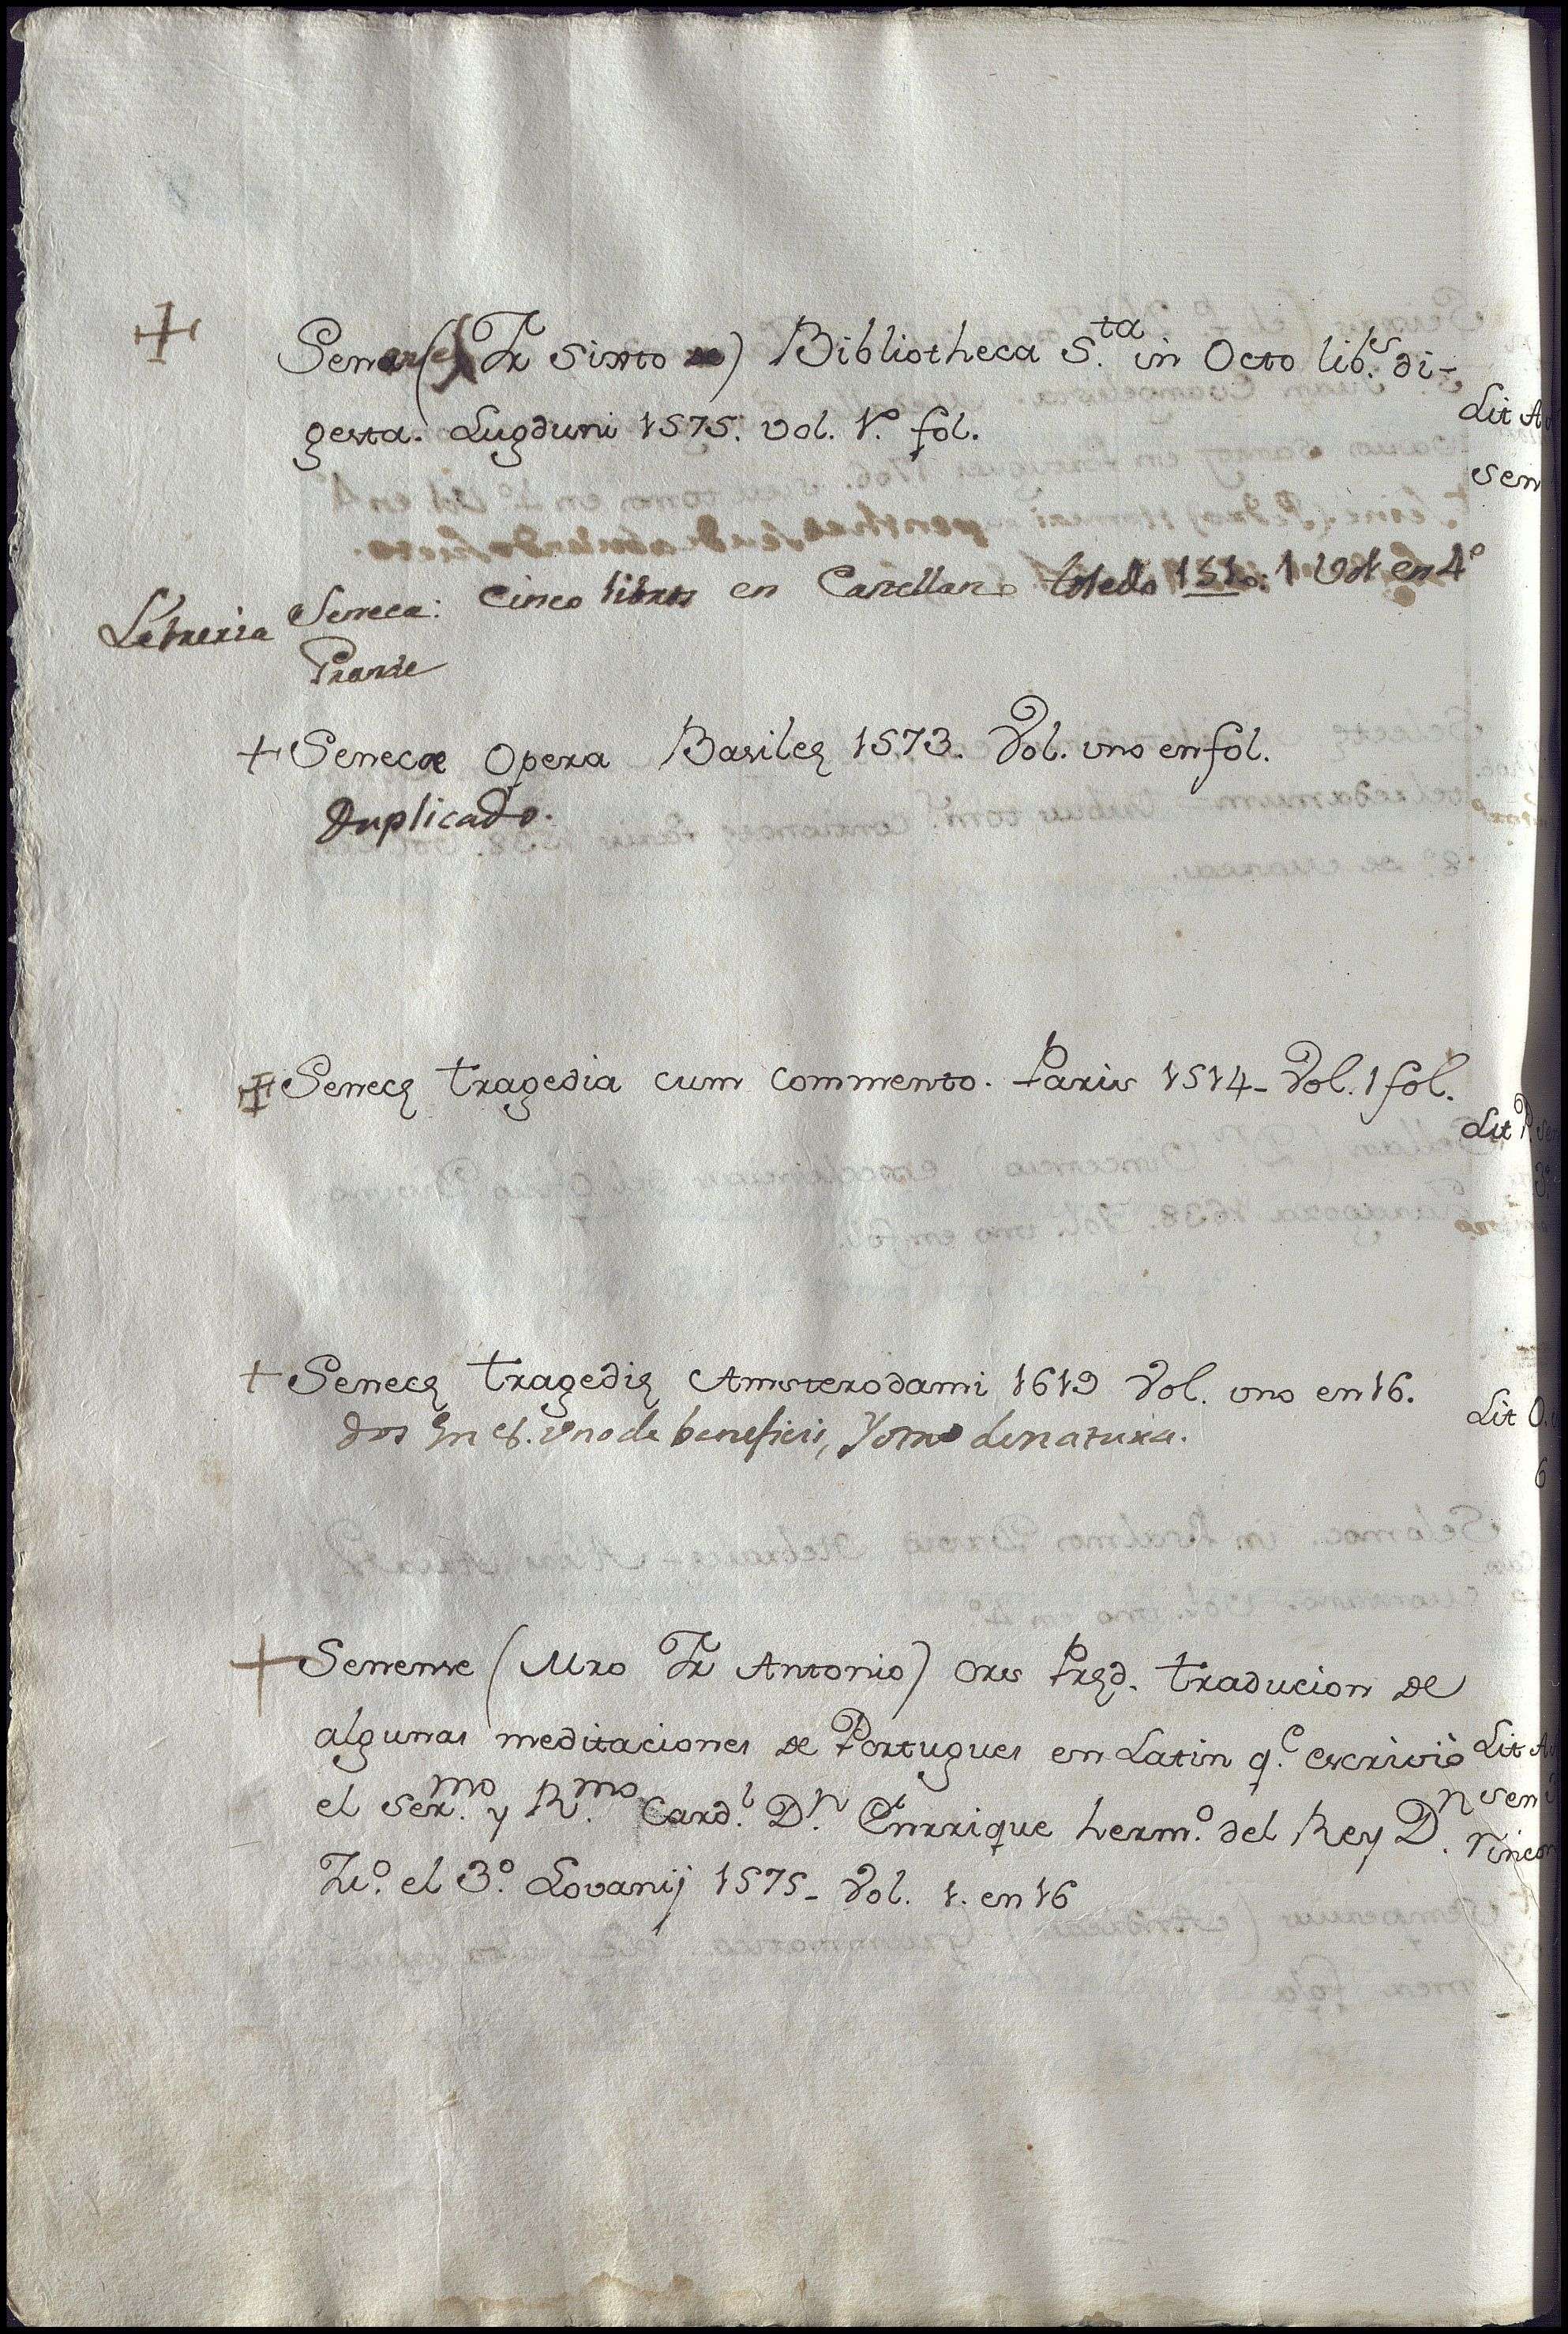 + Sena (Fr Sixto de) Bibliotheca S.ta in Octo lib.s di-
gesta. Lugduni 1575. vol. 1.º fol.
Lit A
sen
Libreria Seneca: Cinco libros en Castellano toledo 1510: 1 Vol en 4º
Grande
+ Senecæ Opera Basileę 1573. Vol. uno en fol.
Duplicado.
+ Senecę tragedia cum commento. Paris 1514 - Vol. 1 fol.
Lit P.
3º
+ Senecę tragedię Amsterodami 1619 Vol. uno en 16.
dos en 8. uno de beneficis, y otro de natura.
Lit O.
6
+ Senense (Mro Fr Antonio) Ors Pręd. traducion de
algunas meditaciones de Portugues en Latin q.e escrivió
Lit A
el ser.mo y R.mo Card.l D.n Enrrique herm.º del Rey D.n
sen
Ju.º el 3.º Lovanij 1575 - Vol. 1. en 16